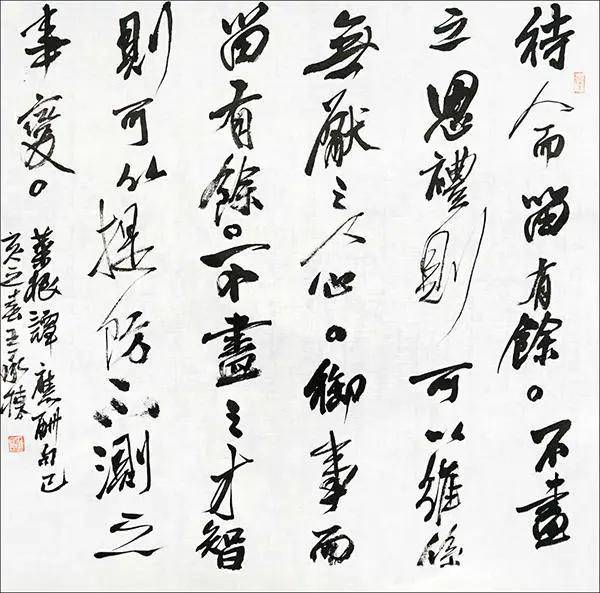 待人而留有餘。不盡
之恩禮則可以維係
無厭之人心。御事而
留有餘。不盡之才智
則可以提防不測之
事變。
菜根譚應酬句己
亥之春王承